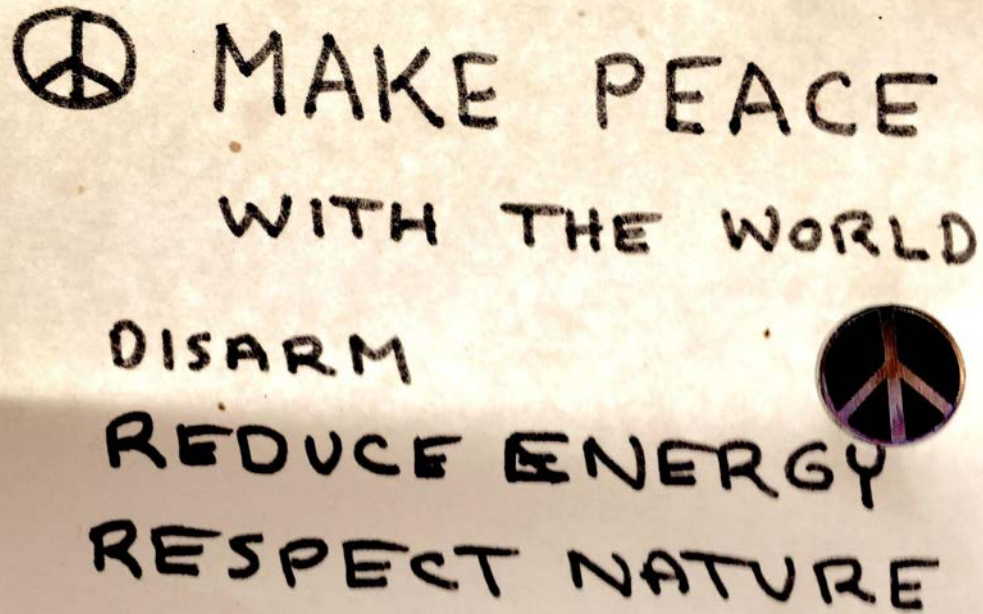 MAKE PEACE
WITH THE WORLD
DISARM
REDUCE ENERGY
RESPECT NATURE